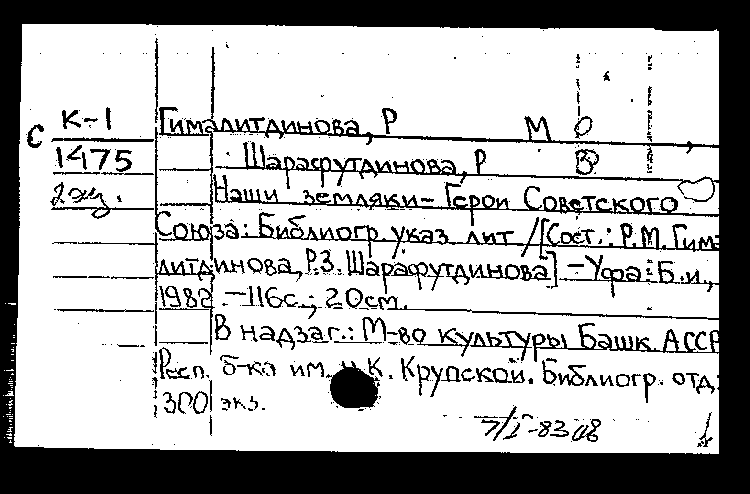 С К-1 Гималитдинова, Р М О ,
1475 Шарафутдинова, Р З
2 экз. Наши земляки - Герои Советского
Союза: Библиогр. указ. лит /[Сост.: Р.М. Гима
литдинова, Р.З. Шарафутдинова] - Уфа: Б.и.,
1982. - 116с.; 20см.
В надзаг.: М-во культуры Башк. АССР
Респ. б-ка им. Н.К. Крупской. Библиогр. отд.
300 экз.
7/I-83